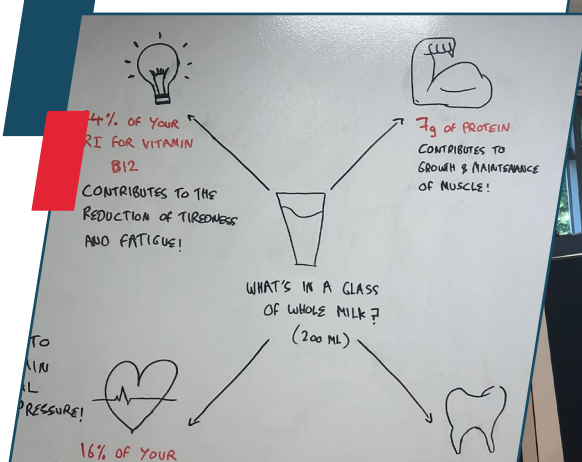 4% OF YOUR
RI FOR VITAMIN
B12
CONTRIBUTES TO THE
REDUCTION OF TIREDNESS
AND FATIGUE!
7g OF PROTEIN
CONTRIBUTES TO
GROWTH & MAINTENANCE
OF MUSCLE!
WHAT'S IN A GLASS
OF WHOLE MILK?
(200 ML)
TO
RESSURE!
16% OF YOUR